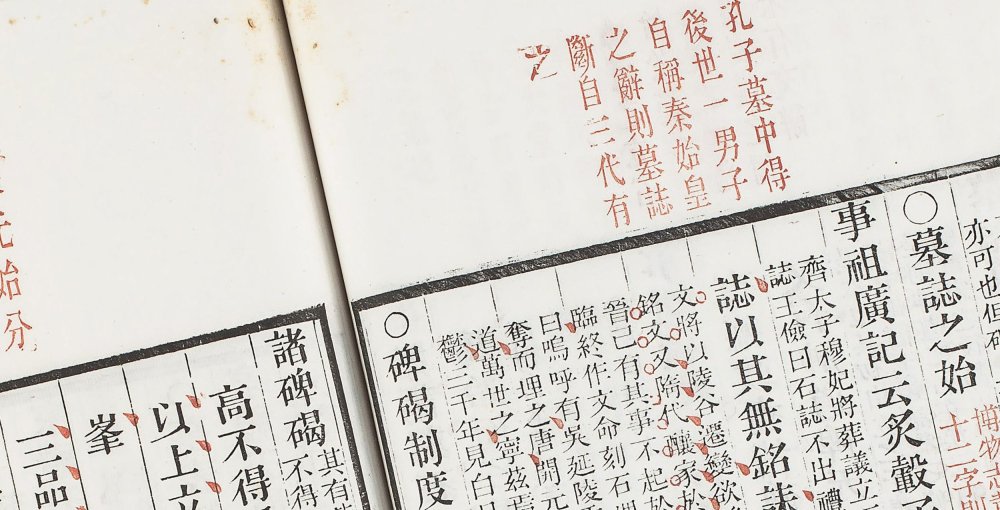 孔子墓中得
後世一男子
自稱秦始皇
之辭則墓誌
斷自三代有
之
亦可也但碑
博物志
十二字則
○墓誌之始
事祖廣記云炙轂子
齊太子穆妃將葬議立
誌王儉曰石誌不出禮
誌以其無銘誄
文將以陵谷遷變欲
銘文又隋代釀家於
晉已有其事不起於
臨終作文命刻石埋
曰嗚呼有吳延陵
奪而埋之唐開元
道萬世之寧茲焉
鬱三千年見白日
○碑碣制度
諸碑碣
其有
不得
高不得
以上立
峯
三品
元始分